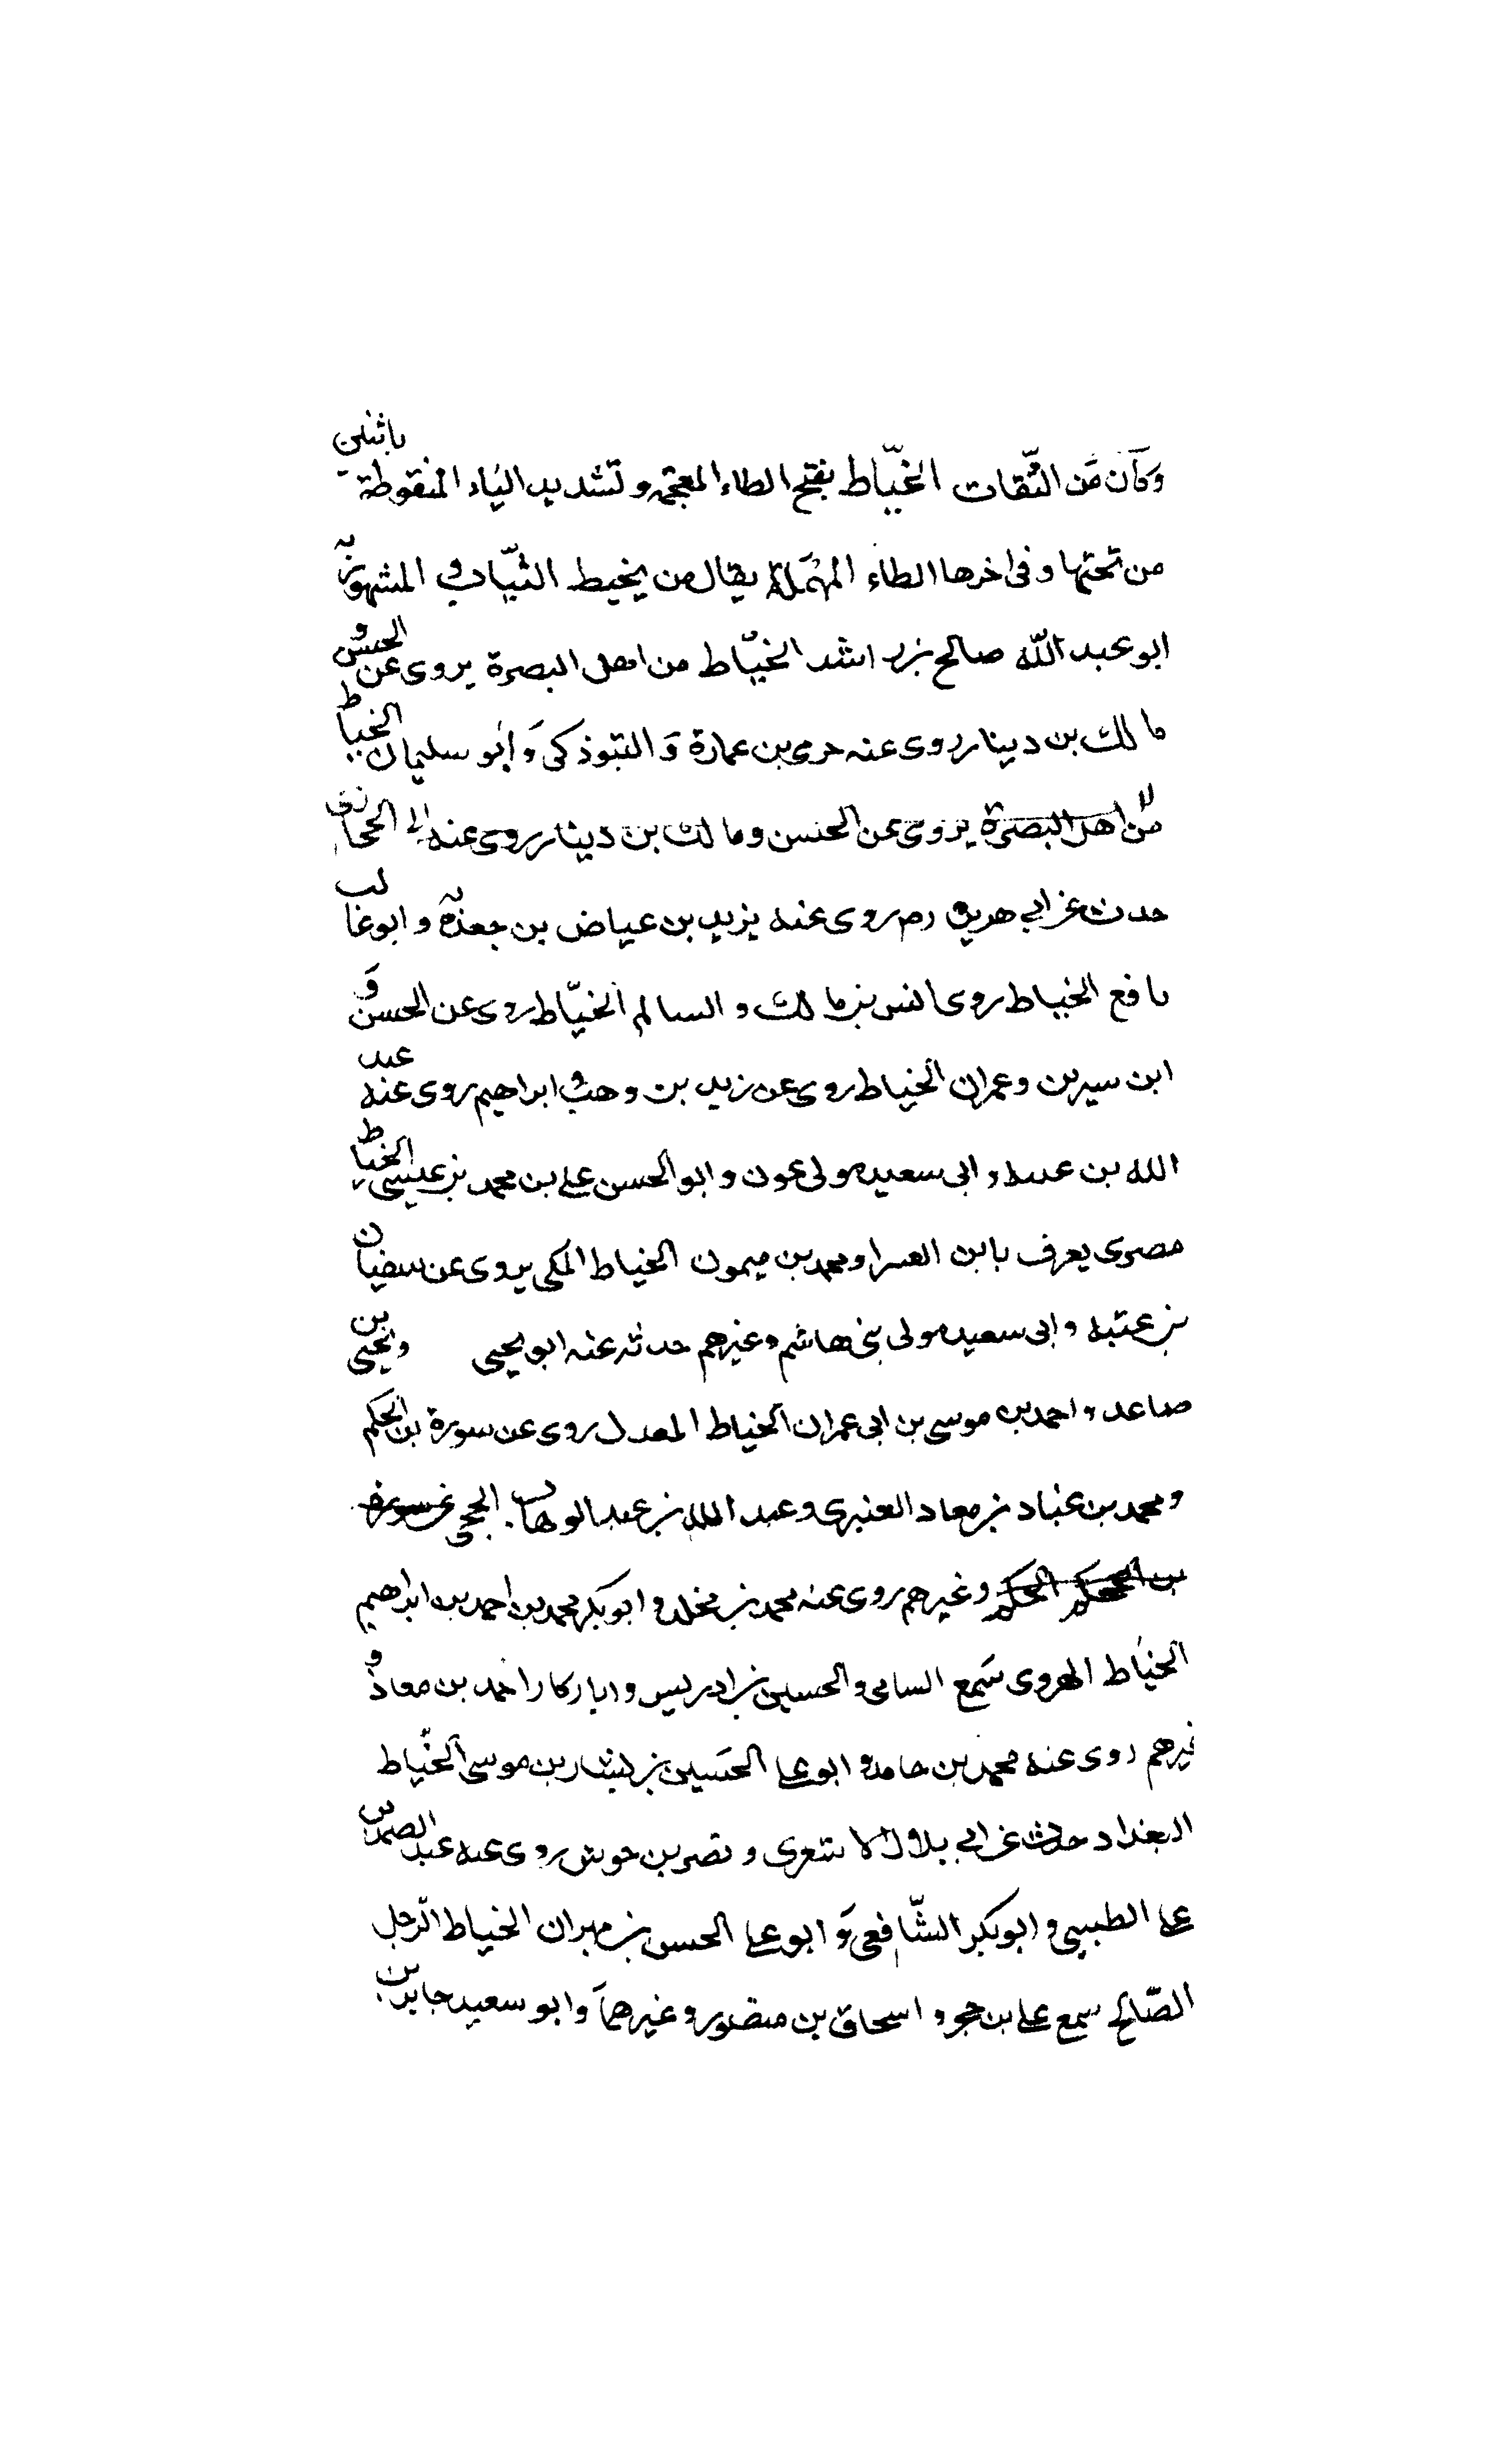 وكان من الثقات الخيّاط بفتح الطاء المعجمه وتشديد الياء المنقوطة باثنين
من تحتها وفى اخرها الطاء المهملة يقال من يخيط الثيّاب و المشهور به
ابو عبد الله صالح بن راشد الخيّاط من اهل البصرة يروى عن الحسن و
مالك بن دينار روى عنه حرمى بن عمارة و التبوذكى و ابو سليمان الخياط
من اهل البصرة يروى عن الحسن ومالك بن دينار روى عنه الحجازى
حدث عن ابى هريرة رم روى عنه يزيد بن عياض بن جعدبة و ابو غالب
نافع الخياط روى انس بن مالك و السالم الخيّاط روى عن الحسن و
ابن سيرين وعمران الخياط روى عن زيد بن وهب و ابراهيم روى عنه عبد
الله بن عبيد و ابى سعيد مولى عون و ابو الحسن على بن محمد بن عيسى الخياط
مصرى يعرف بابن العسرا و محمد بن ميمون الخياط المكى يروى عن سفيان
بن عتبه و ابى سعيد مولى بنى هاشم و غيرهم حدثه عنه ابو يحيى و يحيى بن
صاعد و احمد بن موسى بن ابى عمران الخياط المعدل روى عن سورة بن الحكم
و محمد بن عباد بن معاد العنبرى و عبد الله بن عبد الوهاب الحجبى عن سورة
بن الحكم الحكم و غيرهم روى عنه محمد بن مخلد و ابو بكر محمد بن احمد بن ابراهيم
الخياط الهروى سمع السامى و الحسين بن ادريس و ابا ركار احمد بن معاذ و
غيرهم روى عنه محمد بن حامد و ابو على الحسين بن بشار بن موسى الخيّاط
البغداد حدث عن ابى بلال الاشعرى و نصر بن حريش روى عنه عبد الصمد بن
على الطبسى و ابو بكر الشّافعى و ابو على الحسن بن مهران الخياط الرجل
الصّالح سمع على بن حجر و اسحاق بن منصور و غيرهما و ابو سعيد جابر بن